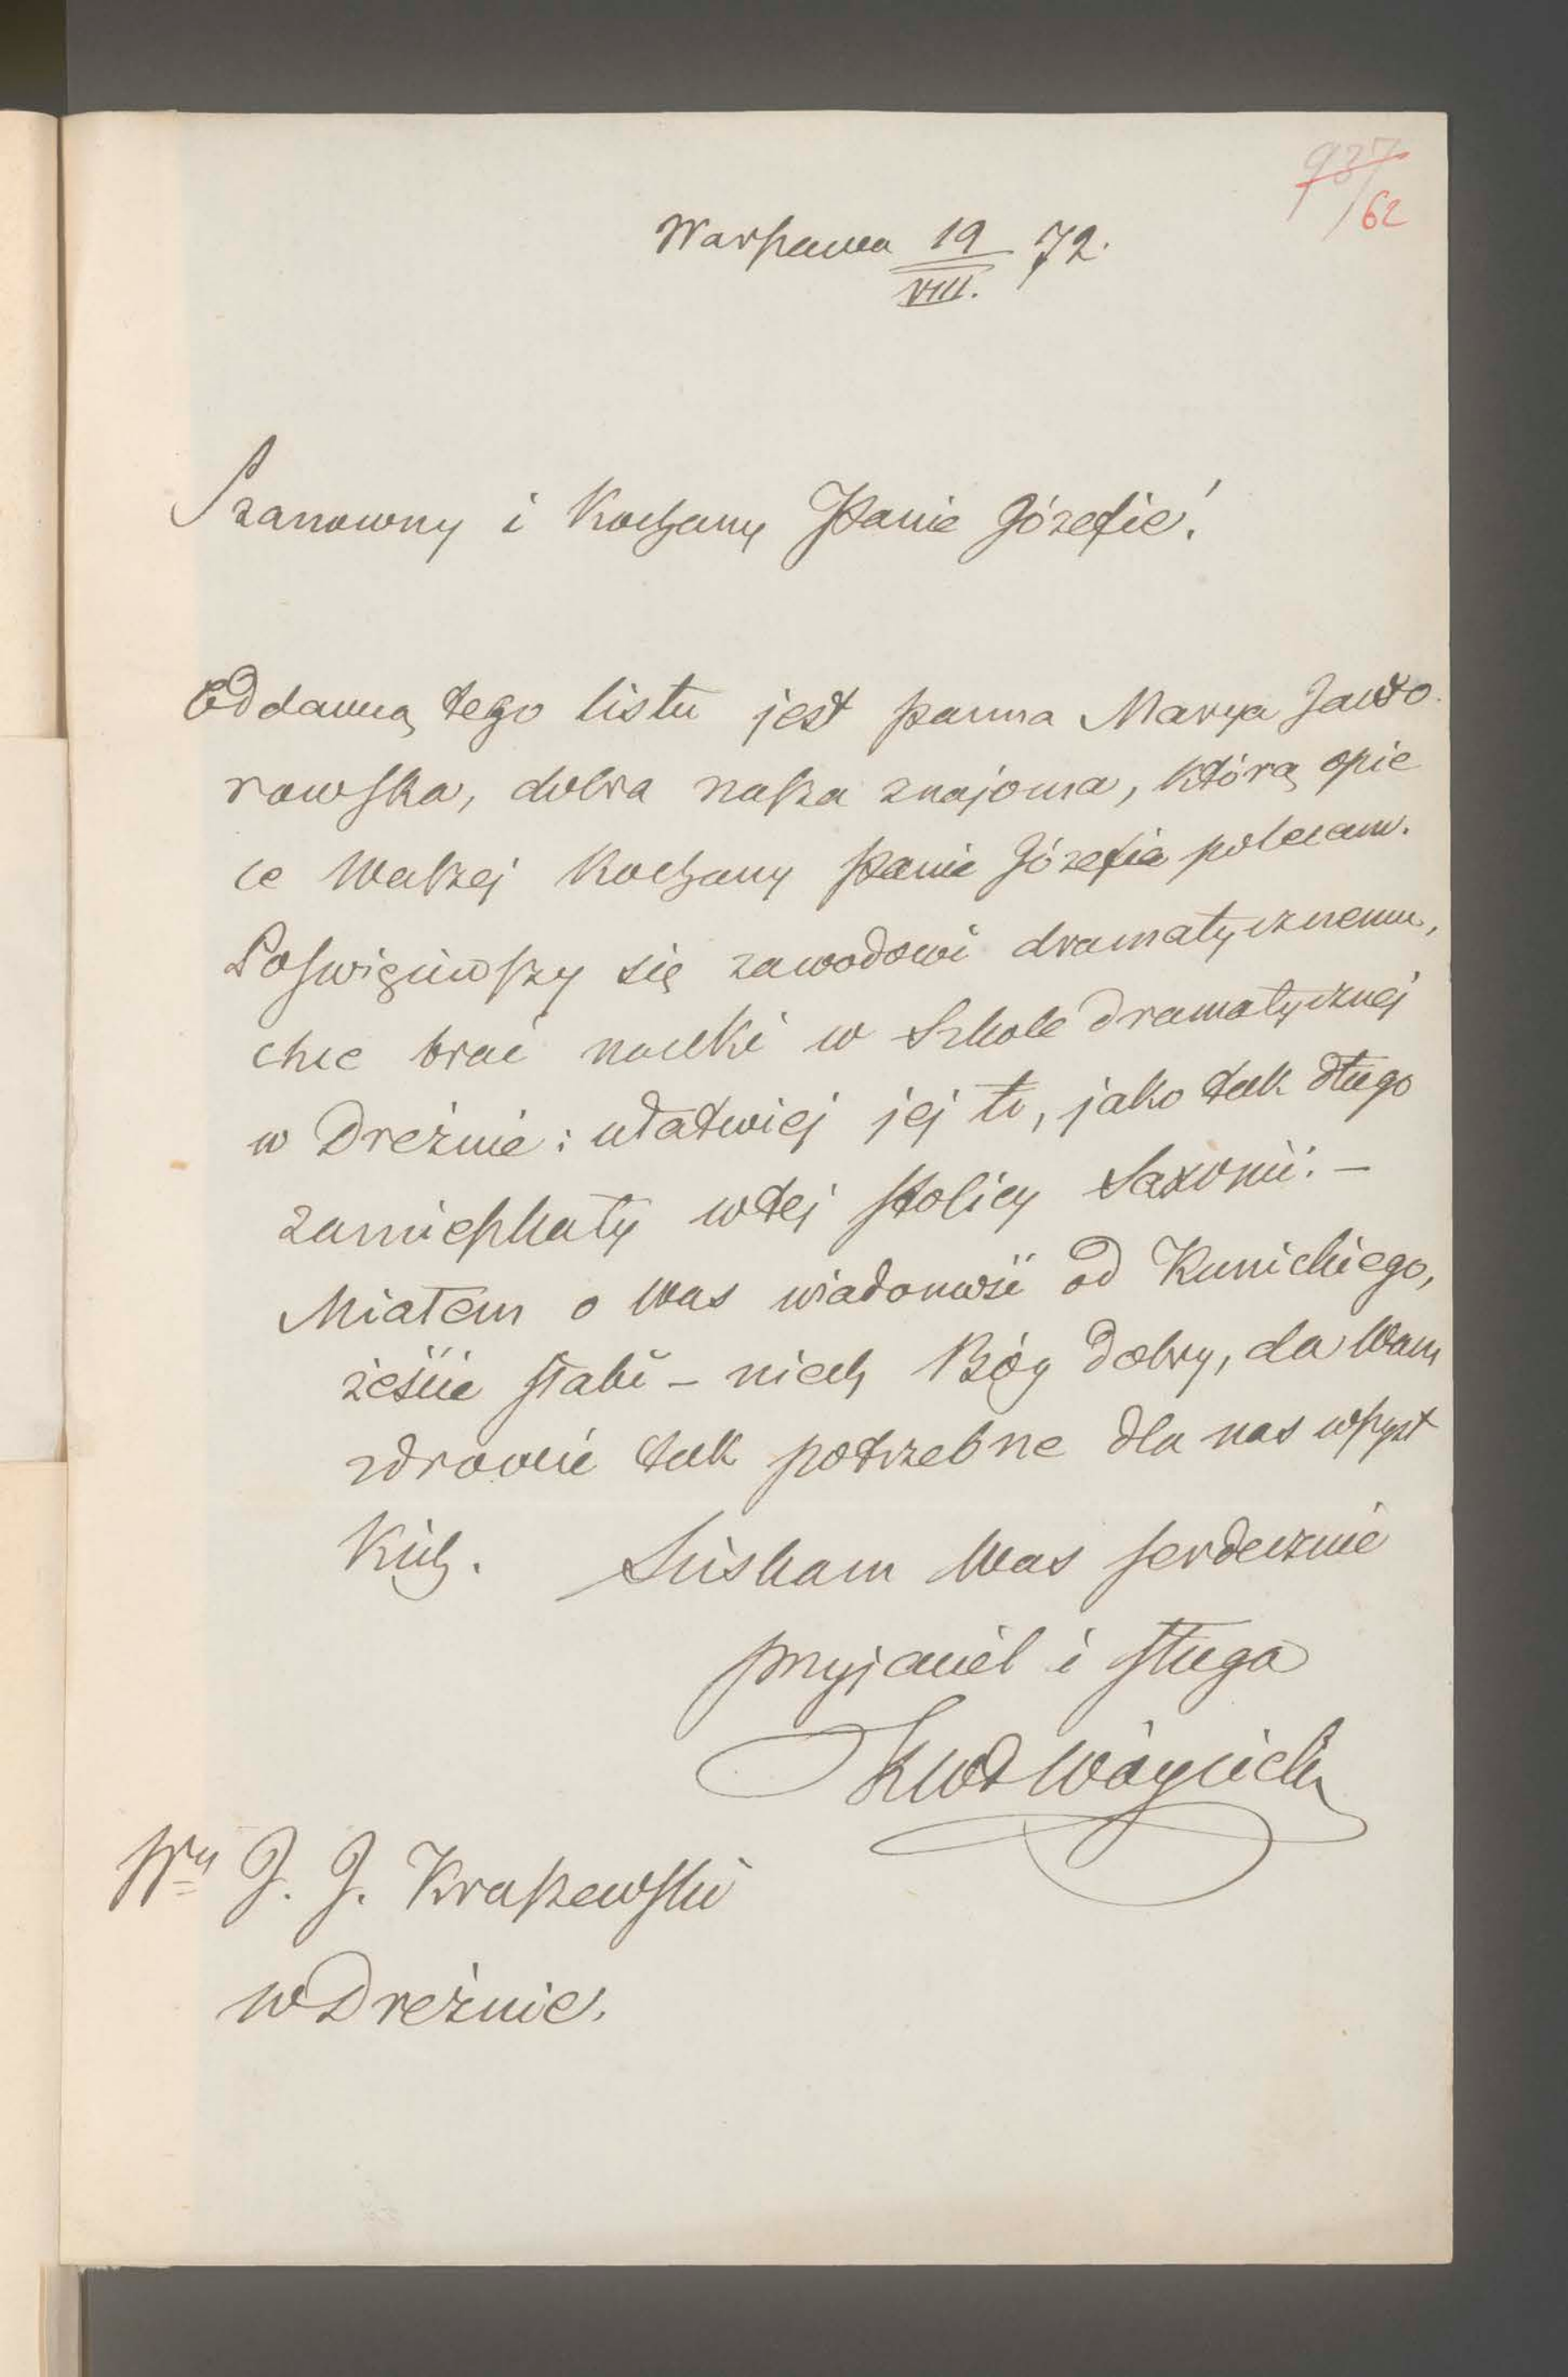 937/62
Warszawa 19/VIII. 72.
Szanowny i Kochany Panie Józefie!
Oddawcą tego listu jest panna Marya Jawo-
rowska, dobra nasza znajoma, którą opie
ce Waszej Kochany Panie Józefie polecam.
Poświęciwszy się zawodowi dramatycznemu,
chce brać nauki w Szkole dramatycznej
w Dreźnie: ułatwiej jej to, jako tak długo
zamieszkały w tej stolicy Saxonii. –
Miałem o Was wiadomość od Kunickiego,
żeście słabi – niech Bóg dobry, da Wam
zdrowie tak potrzebne dla nas wszyst
kich. Sciskam Was serdecznie
przyjaciel i sługa
KWł Wóycicki
Wny J. J. Kraszewski
w Dreźnie.